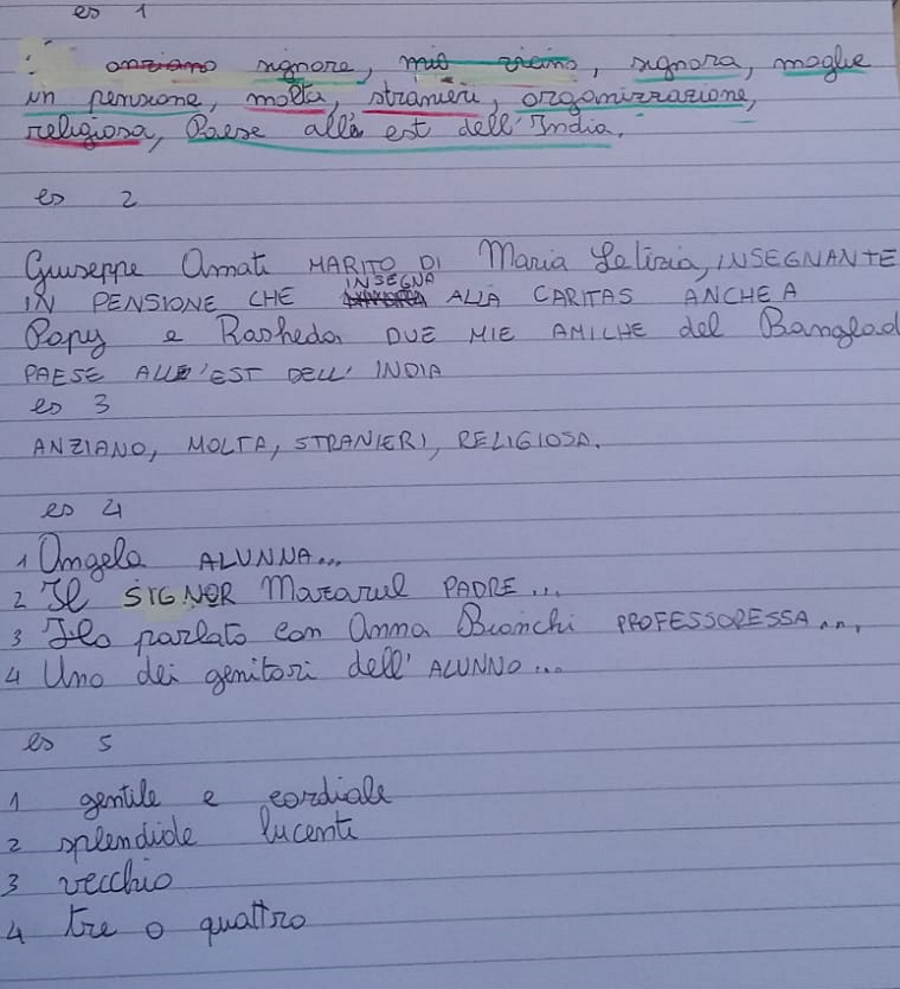 es 1
anziano signore, mio vicino, signora, moglie
in pensione, molta, stranieri, organizzazione,
religiosa, Paese all'a est dell'India.
es 2
Giuseppe Amati MARITO DI Maria Letizia, INSEGNANTE
INSEGNA
IN PENSIONE CHE ALLA CARITAS ANCHE A
Popy e Rasheda DUE MIE AMICHE del Banglad
PAESE ALL'EST DELL'INDIA
es 3
ANZIANO, MOLTA, STRANIERI, RELIGIOSA.
es 4
1 Angela ALUNNA...
2 Il SIGNOR Mazarul PADRE...
3 Ho parlato con Anna Bianchi PROFESSORESSA...
4 Uno dei genitori dell'ALUNNO...
es 5
1 gentile e cordiale
2 splendide lucenti
3 vecchio
4 tre o quattro